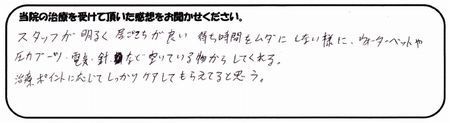 当院の治療を受けて頂いた感想をお聞かせください。
スタッフが明るく居ごこちが良い 待ち時間をムダにしない様に、ウォーターベットや
圧力ブーツ・電気・針など空いている物からしてくれる。
治療ポイントに応じてしっかりケアしてもらえてると思う。